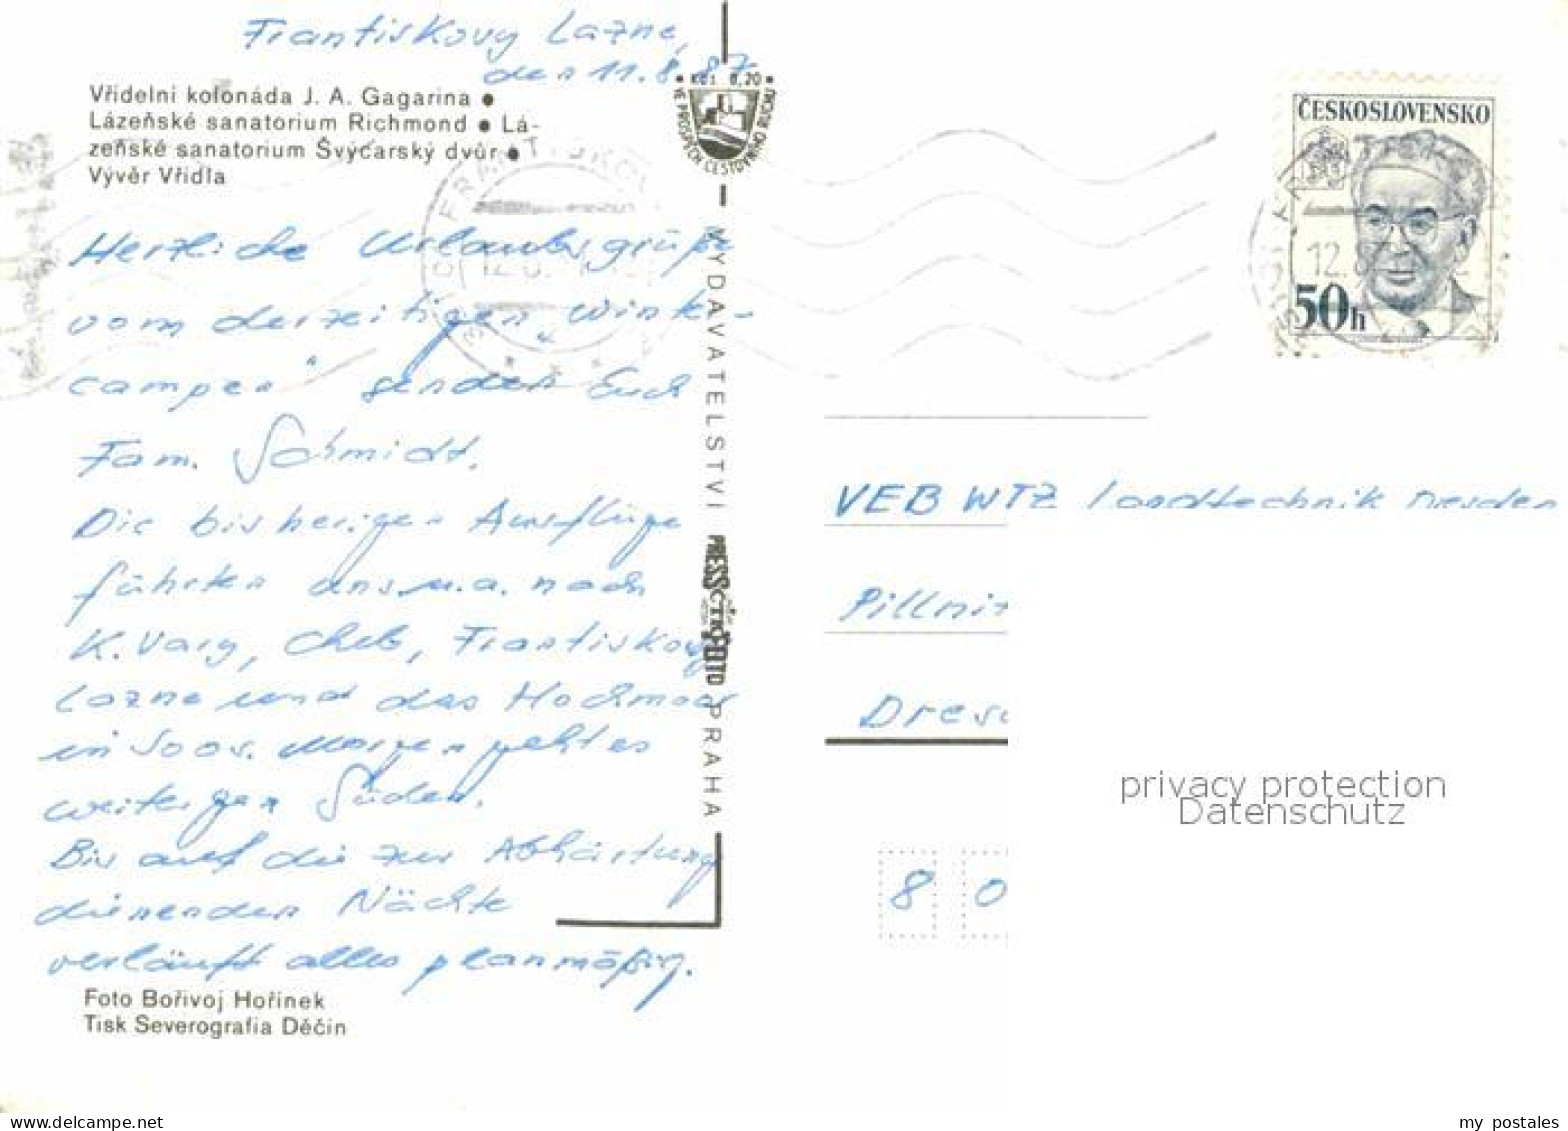 Frantiskovy Lazne,
den 11.8.87
Vřídelní kolonáda J. A. Gagarina ●
Lázeňské sanatorium Richmond ● Lá-
zeňské sanatorium Švýcarský dvůr ●
Vývěr Vřídla
Kčs 0,20
VE PROSPĚCH CESTOVNÍHO RUCHU
Herzliche Urlaubsgrüße
vom derzeitigen „Wink-
campen“ senden Euch
Fam. Schmidt.
Die bisherigen Ausflüge
führten uns u.a. nach
K. Vary, Cheb, Frantiskovy
Lazne und das Hochmoor
in Soos. Morgen geht es
weiter gen Süden.
Bis auf die zur Abhärtung
dienenden Nächte
verläuft alles planmäßig.
Foto Bořivoj Hořínek
Tisk Severografia Děčín
VYDAVATELSTVÍ PRESSFOTO PRAHA
ČTK
ČESKOSLOVENSKO
50h
12.
VEB WTZ Landtechnik Dresden
Pillnit
Dresd
8 0
privacy protection
Datenschutz
my postales